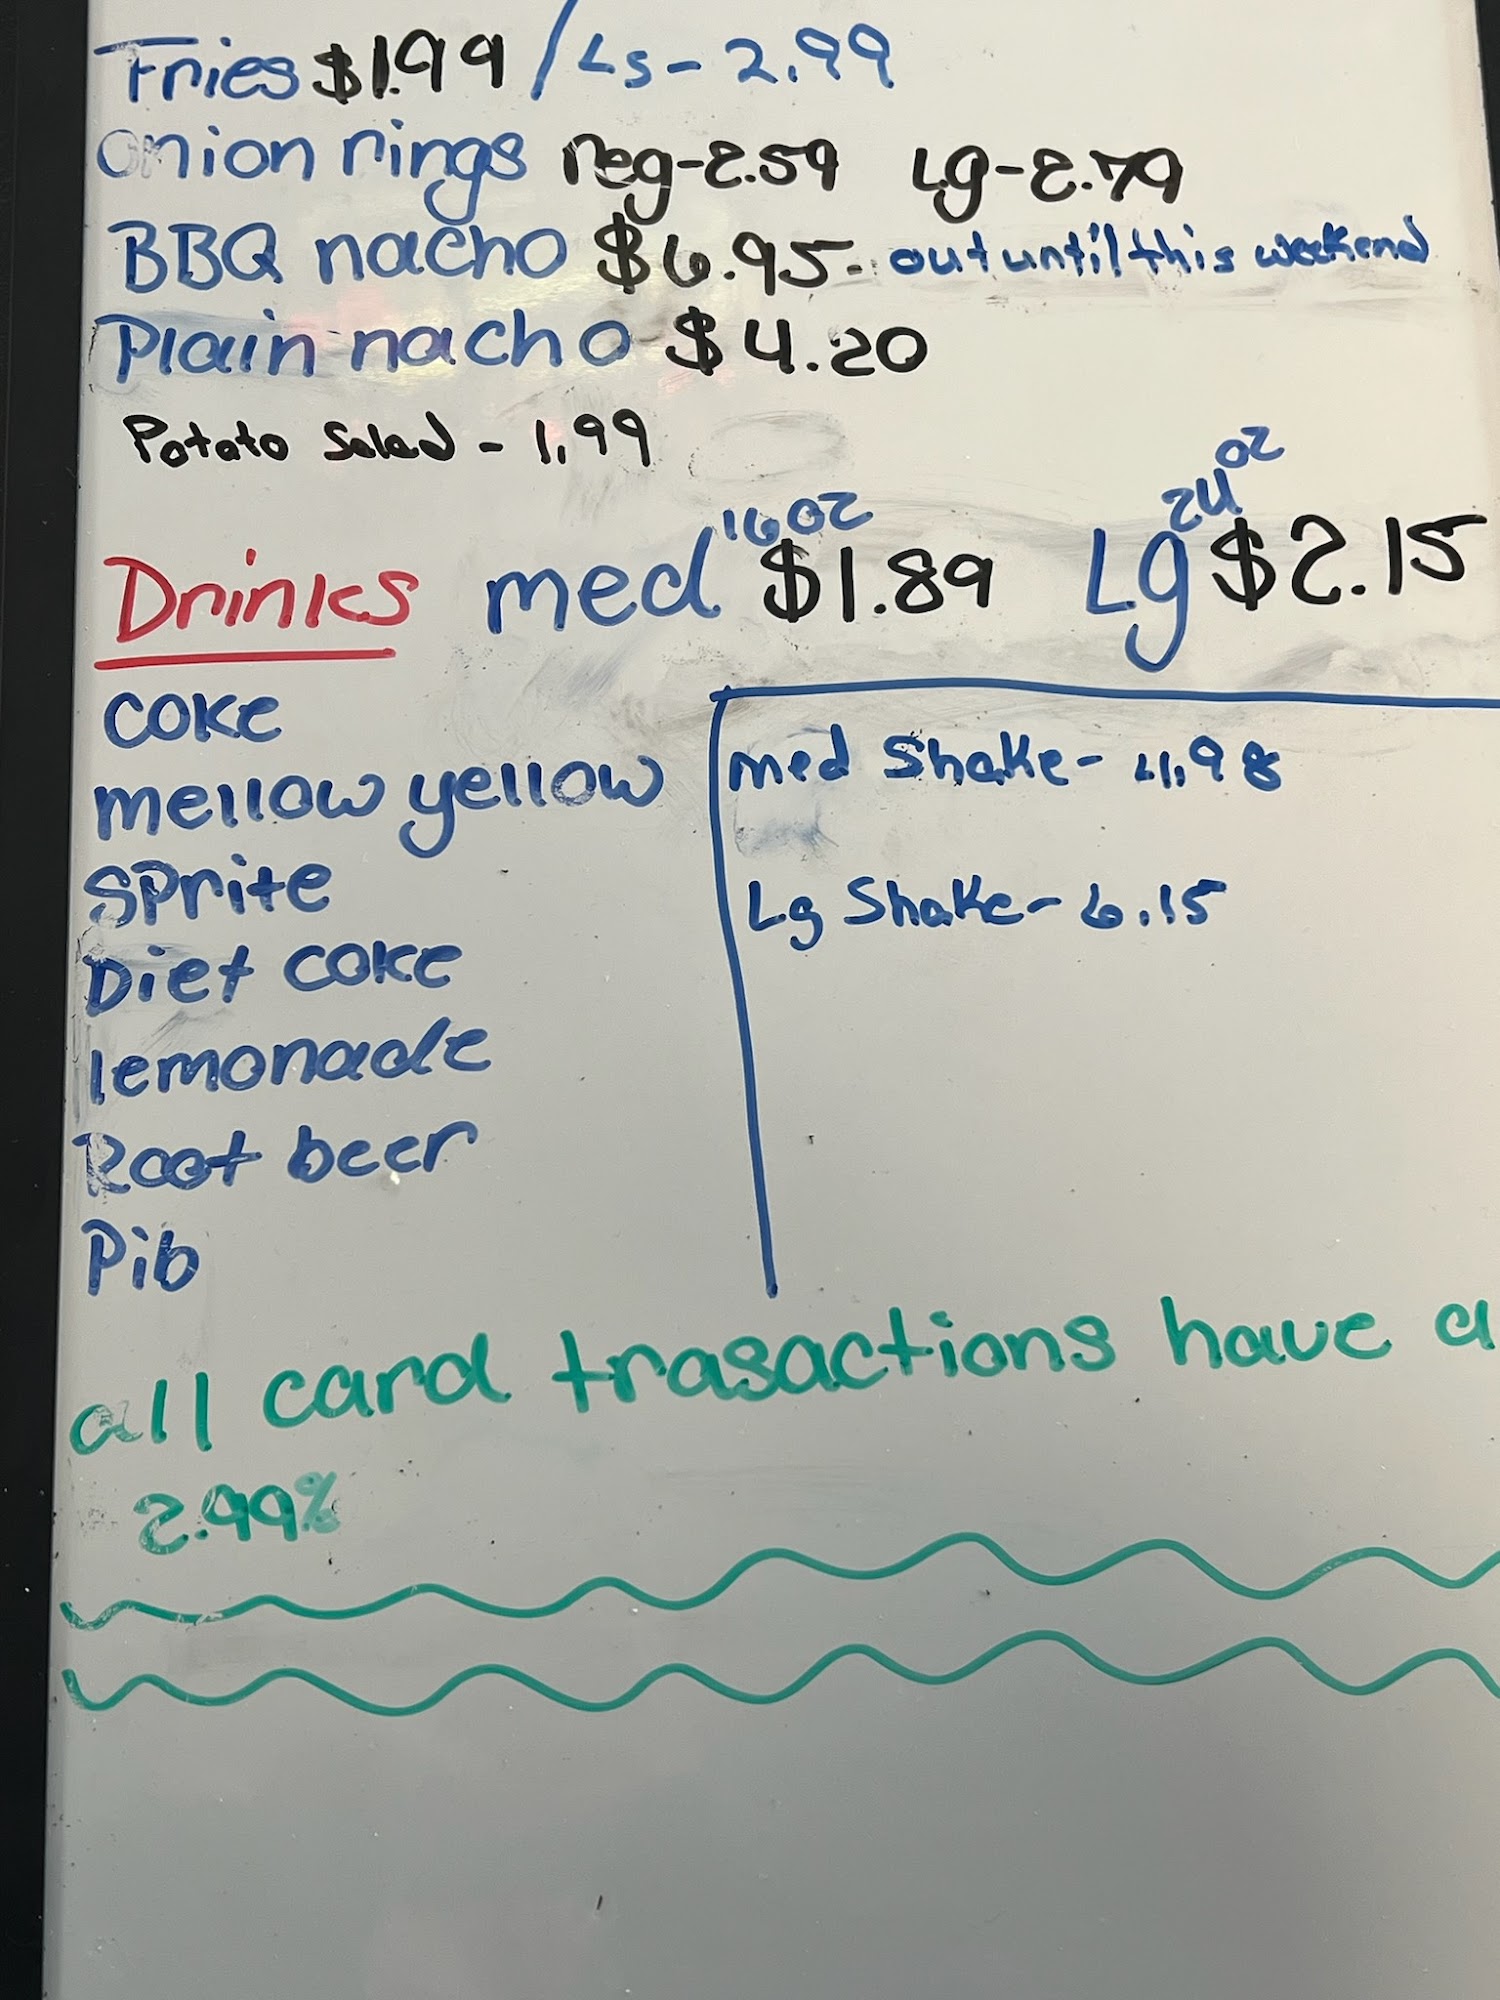 Fries $1.99 / Lg - 2.99
onion rings reg-2.59 Lg-2.79
BBQ nacho $6.95- out until this weekend
Plain nacho $4.20
Potato Salad - 1.99
Drinks med 16oz $1.89 Lg 24oz $2.15
coke
mellow yellow
Sprite
Diet coke
lemonade
Root beer
Pib
med Shake- 4.98
Lg Shake- 6.15
all card trasactions have a
2.99%